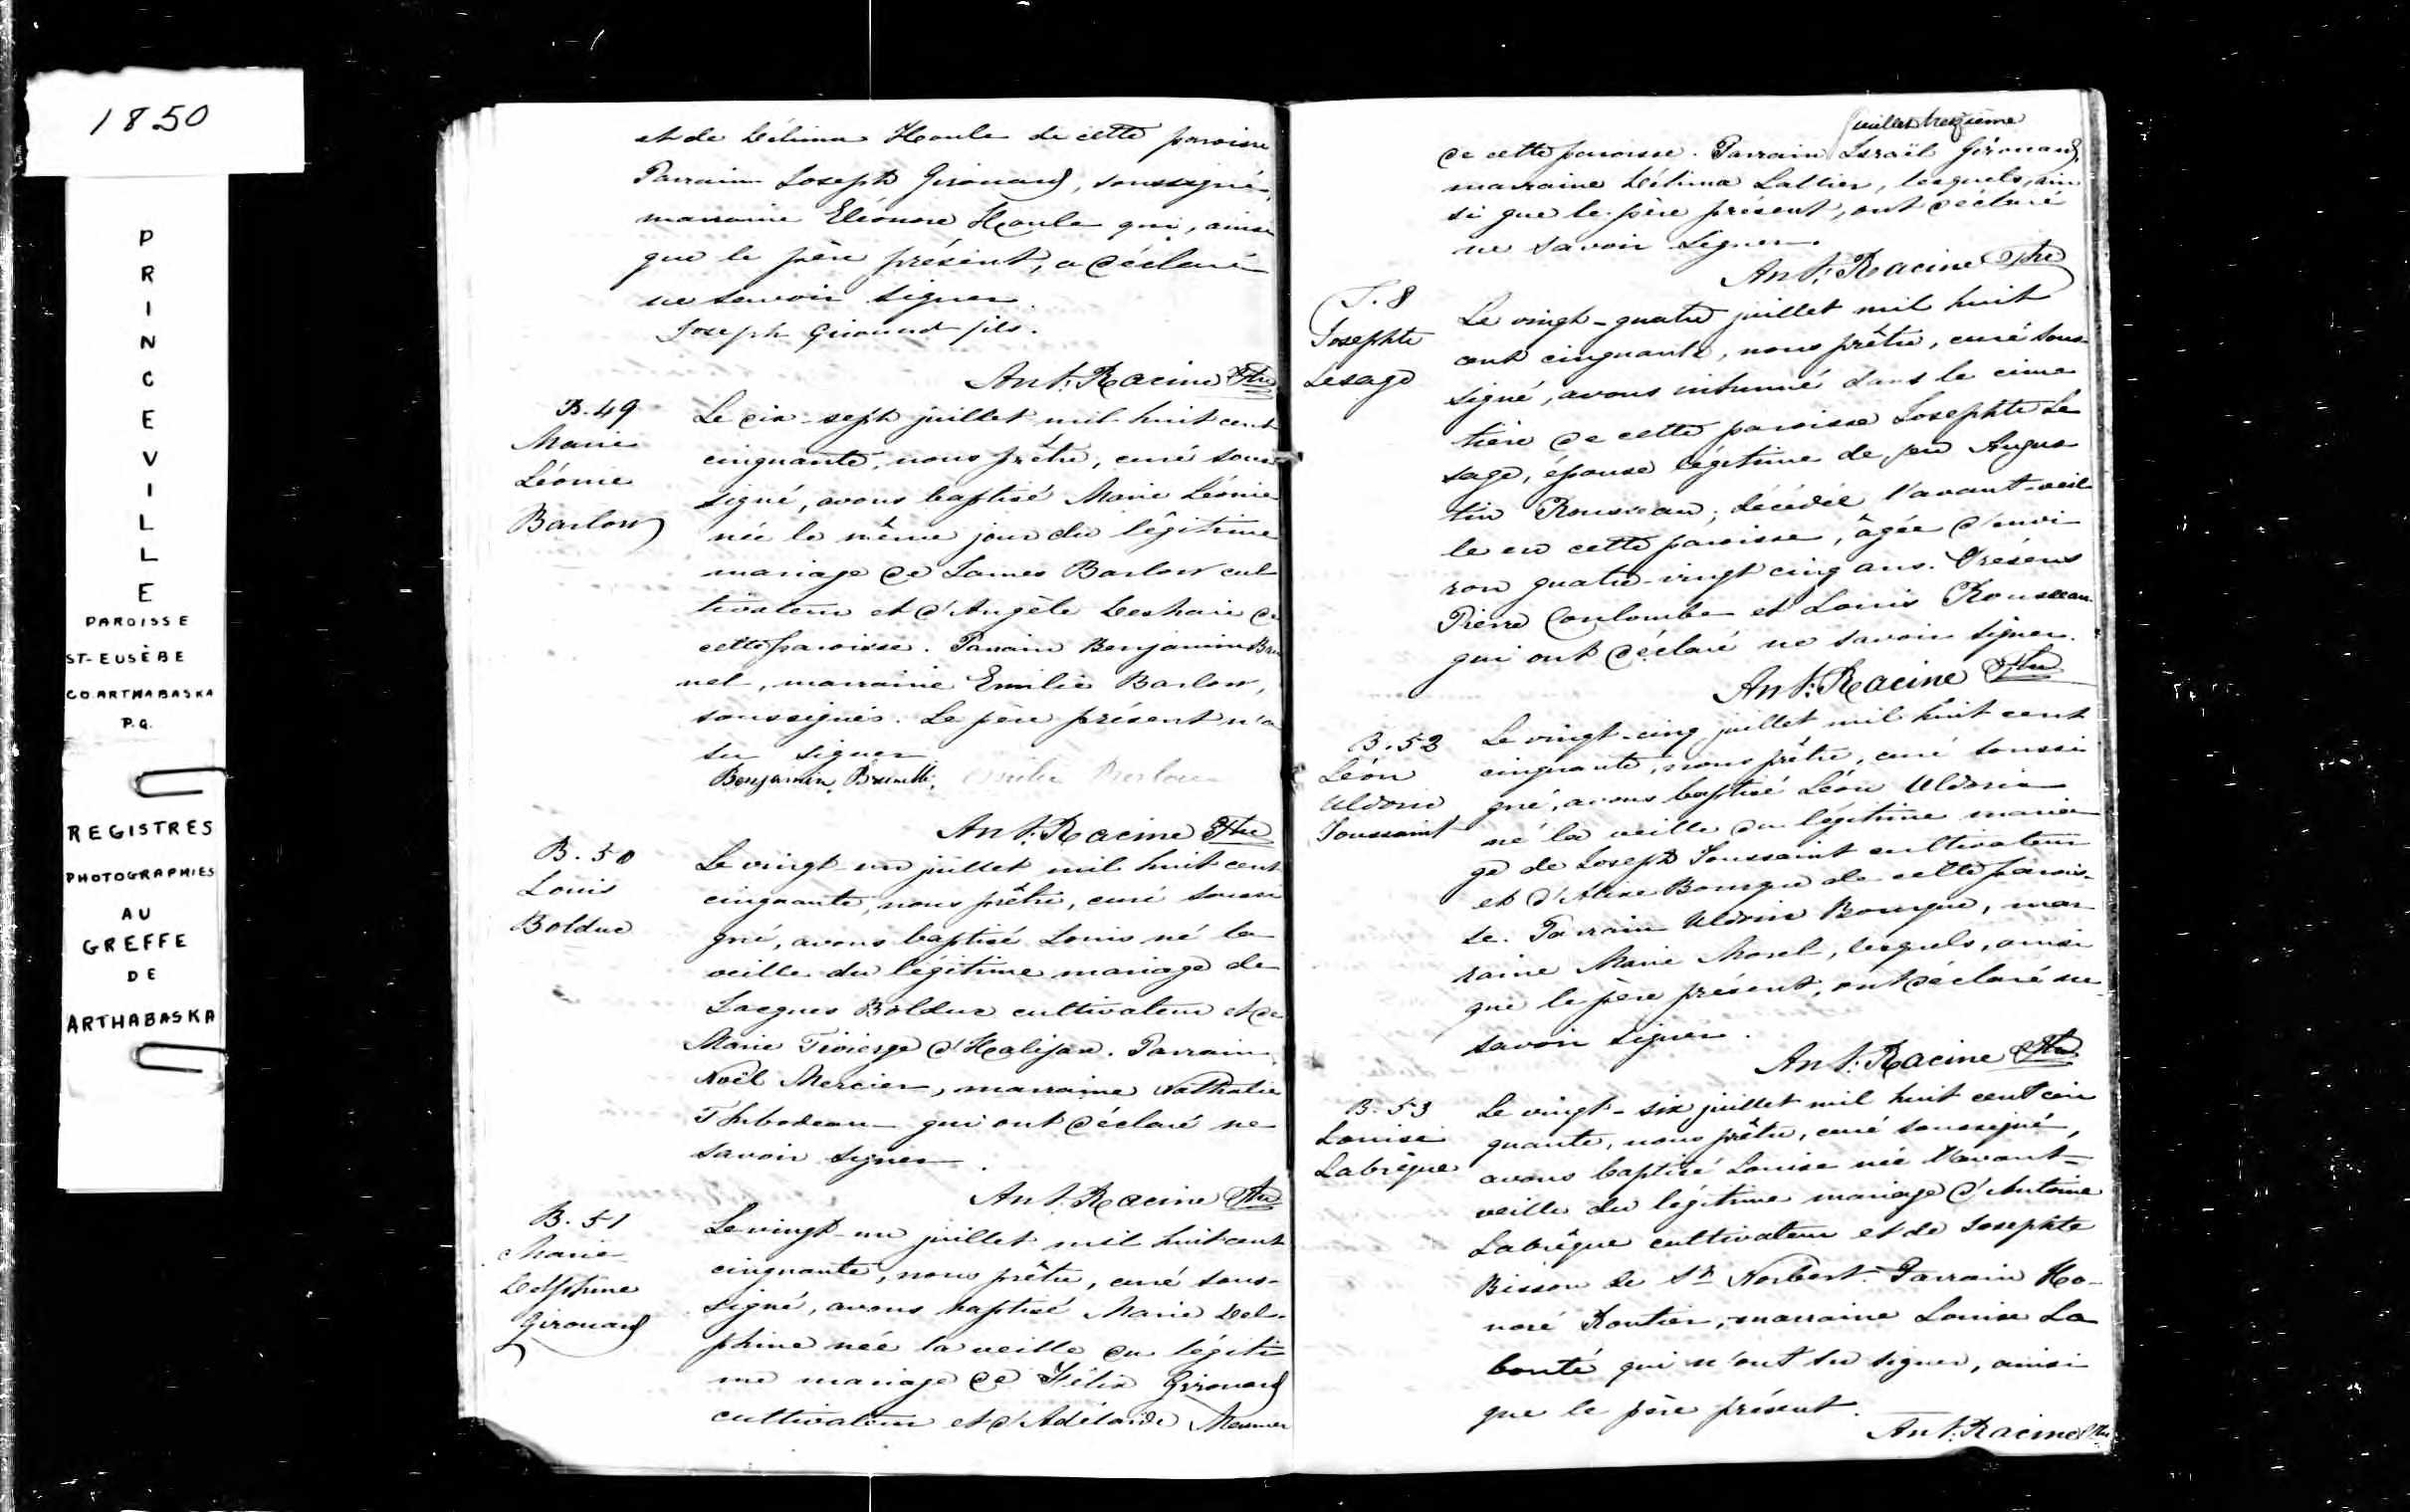 1850
PRINCEVILLE
PAROISSE
ST-EUSÈBE
CO. ARTHABASKA
P.Q.
REGISTRES
PHOTOGRAPHIES
AU
GREFFE
DE
ARTHABASKA
et de Délima Houle de cette paroisse
Parrain Joseph Girouard, soussigné,
marraine Eléonore Houle qui, ainsi
que le père présent, a déclaré
ne savoir signer.
Joseph Girouard fils.
Ant. Racine Ptre
B. 49
Marie
Léonie
Barlow
Le dix-sept juillet mil huit cent
cinquante, nous prêtre, curé sous
signé, avons baptisé Marie Léonie
née le même jour du légitime
mariage de James Barlow cul
tivateur et d'Angèle Deshaie de
cette paroisse. Parrain Benjamin Bru
nel, marraine Emilie Barlow,
soussignés. Le père présent n'a
su signer
Benjamin Brunelle, Emilie Barlow
Ant. Racine Ptre
B. 50
Louis
Bolduc
Le vingt-un juillet mil huit cent
cinquante, nous prêtre, curé soussi
gné, avons baptisé Louis né la
veille du légitime mariage de
Jacques Bolduc cultivateur et de
Marie Tivierge d'Halifax. Parrain
Noël Mercier, marraine Nathalie
Thibodeau qui ont déclaré ne
savoir signer.
Ant. Racine Ptre
B. 51
Marie
Delphine
Girouard
Le vingt-un juillet mil huit cent
cinquante, nous prêtre, curé sous-
signé, avons baptisé Marie Del-
phine née la veille du légiti
me mariage de Félix Girouard
cultivateur et d'Adélaïde
Juillet treizième
de cette paroisse. Parrain Israël Girouard,
marraine Délima Lallier, lesquels, ain
si que le père présent, ont déclaré
ne savoir signer.
Ant. Racine Ptre
S. 8
Josephte
Lesage
Le vingt-quatre juillet mil huit
cent cinquante, nous prêtre, curé sous-
signé, avons inhumé dans le cime
tière de cette paroisse Josephte Le
sage, épouse légitime de feu Augus
tin Rousseau, décédée l'avant-veil
le en cette paroisse, âgée d'envi-
ron quatre-vingt cinq ans. Présens
Pierre Coulombe et Louis Rousseau
qui ont déclaré ne savoir signer.
Ant. Racine Ptre
B. 52
Léon
Uldoric
Toussaint
Le vingt-cinq juillet mil huit cent
cinquante, nous prêtre, curé soussi
gné, avons baptisé Léon Uldoric
né la veille du légitime maria
ge de Joseph Toussaint cultivateur
et d'Alixe Bourque de cette parois-
se. Parrain Uldoric Bourque, mar
raine Marie Morel, lesquels, ainsi
que le père présent, ont déclaré ne
savoir signer.
Ant. Racine Ptre
B. 53
Louise
Labrèque
Le vingt-six juillet mil huit cent cin
quante, nous prêtre, curé soussigné,
avons baptisé Louise née l'avant-
veille du légitime mariage d'Antoine
Labrèque cultivateur et de Josephte
Bisson de St Norbert. Parrain Ho-
noré Routier, marraine Louise La
bonté qui n'ont su signer, ainsi
que le père présent.
Ant. Racine Ptre